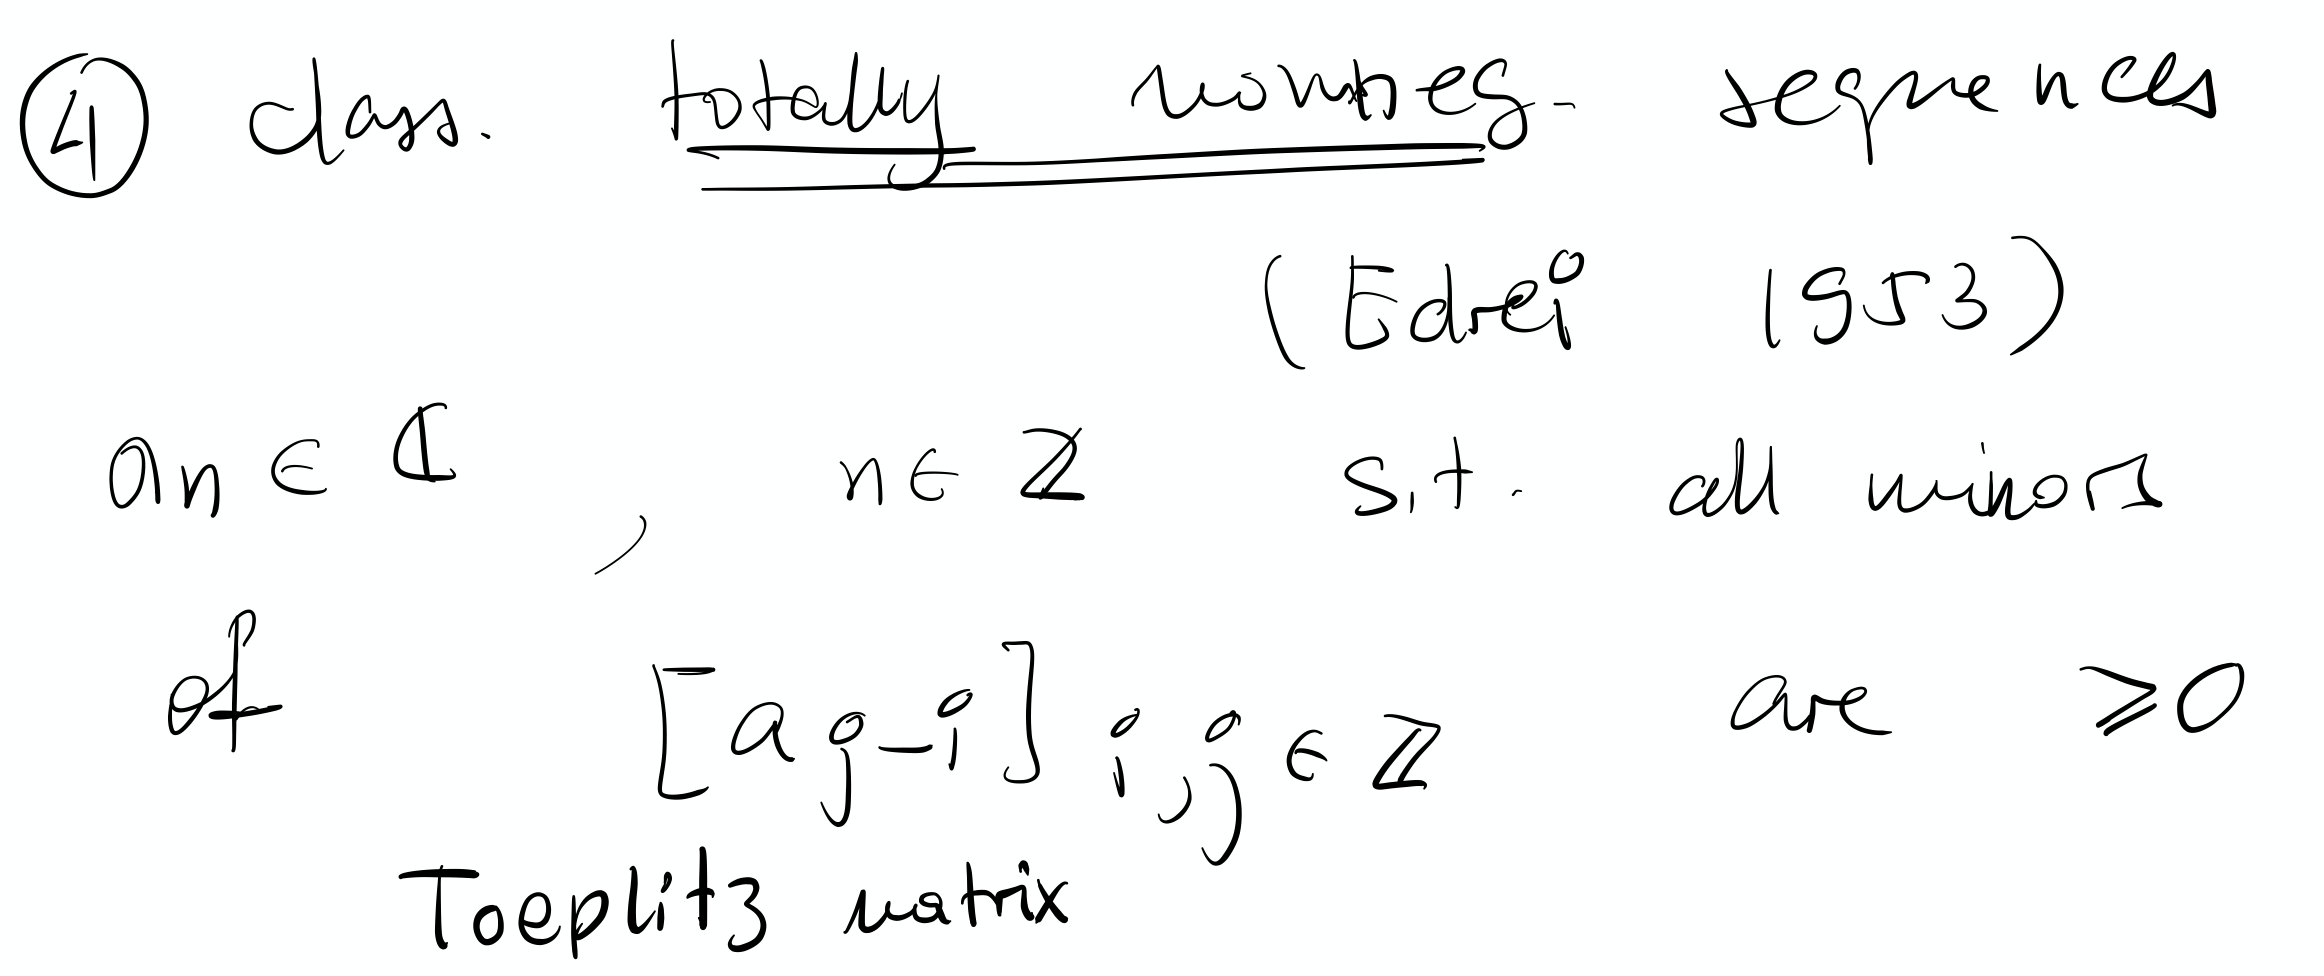 ④ class. totally nonneg. sequences
(Edrei 1953)
aₙ ∈ ℂ , n ∈ ℤ s.t. all minors
of [a_{j-i}]_{i,j ∈ ℤ} are ⩾0
Toeplitz matrix